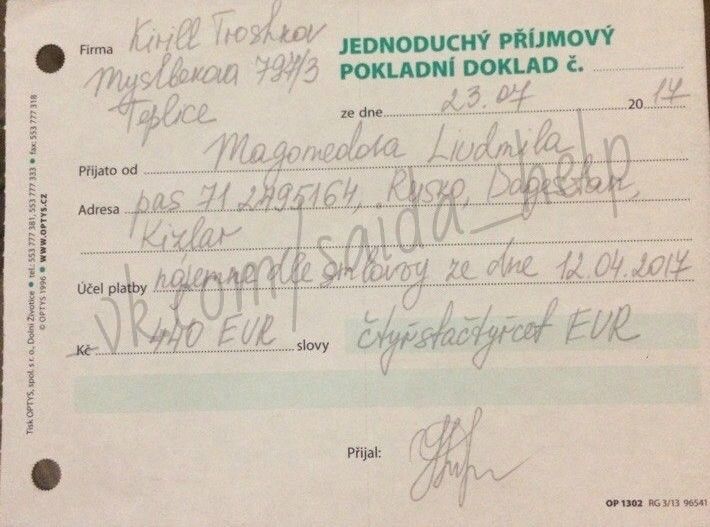 Firma Kirill Troshkov
JEDNODUCHÝ PŘÍJMOVÝ
POKLADNÍ DOKLAD č.
Myslbekova 797/3
Teplice
ze dne 23.07 20 17
Přijato od Magomedova Liudmila
Adresa pas 71 2495164, Rusko, Dagestan,
Kizlar
Účel platby nájemné dle smlouvy ze dne 12.04.2017
Kč 440 EUR slovy čtyřistačtyřicet EUR
Přijal:
OP 1302 RG 3/13 96541
Tisk OPTYS, spol. s r. o., Dolní Životice • tel.: 553 777 381, 553 777 333 • fax: 553 777 318
© OPTYS 1996 • WWW.OPTYS.CZ
vk.com/saida_help